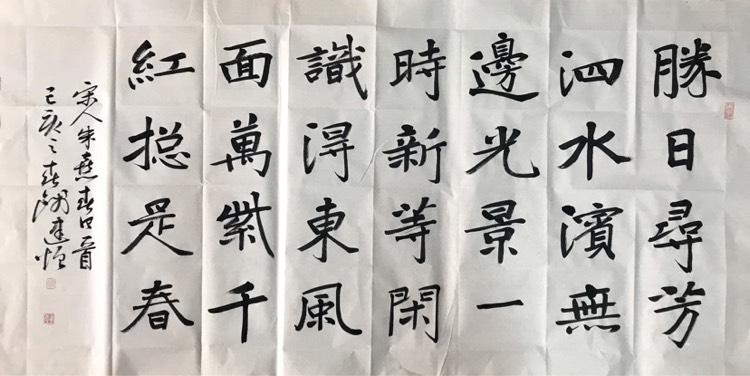 勝日尋芳
泗水濱無
邊光景一
時新等閑
識得東風
面萬紫千
紅摠是春
宋人朱熹春日一首
己亥之春